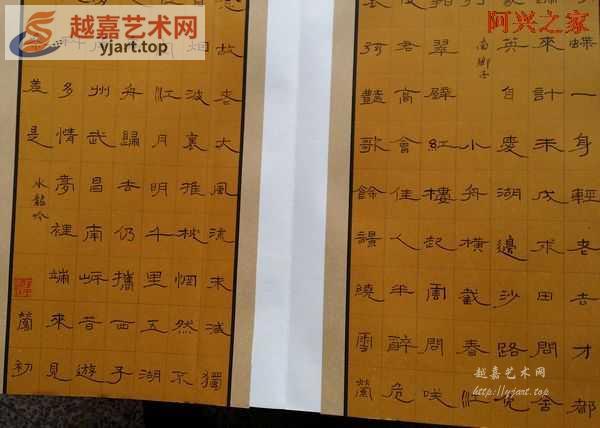 越嘉艺术网
yjart.top
阿兴之家
蝶一身輕老去才都
來計未成求田問舍
英自愛湖邊沙路免
南鄉子
小舟橫截春江
翠壁紅樓起雲間咲
君高會佳人半醉危
豔歌餘響繞雲縈
故老大風流未減獨
烟波裏推枕惘然不
江月明千里五湖
舟歸去仍攜西子
州武昌南岸昔遊
料多情夢裡端來見
差是
水龍吟
初
越嘉艺术网
http://yjart.top